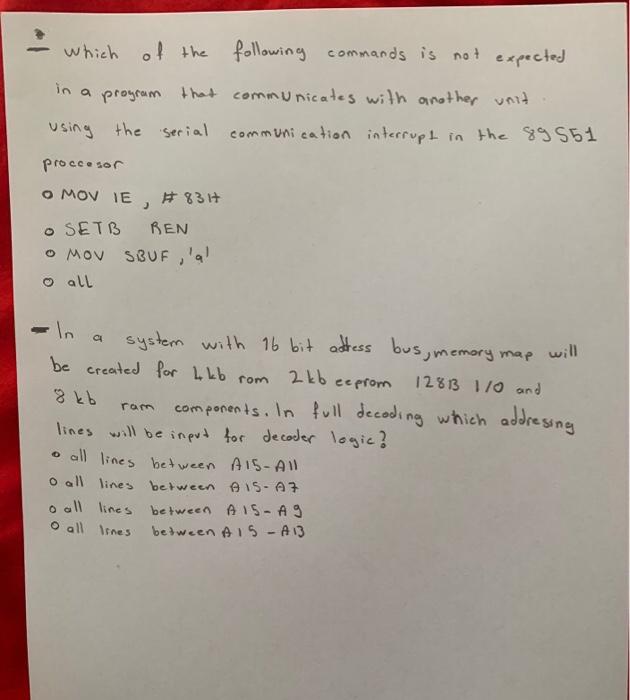 which of the following commands is not expected
in a program that communicates with another unit.
using the serial communication interrupt in the 89S51
proccesor
o MOV IE, #83H
o SETB REN
o MOV SBUF, 'a'
o all
- In a system with 16 bit adress bus, memory map will
be created for 4kb rom 2kb eeprom 128B I/O and
8 kb ram components. In full decoding which addresing
lines will be input for decoder logic?
o all lines between A15-A11
o all lines between A15-A7
o all lines between A15-A9
o all lines between A15-A13